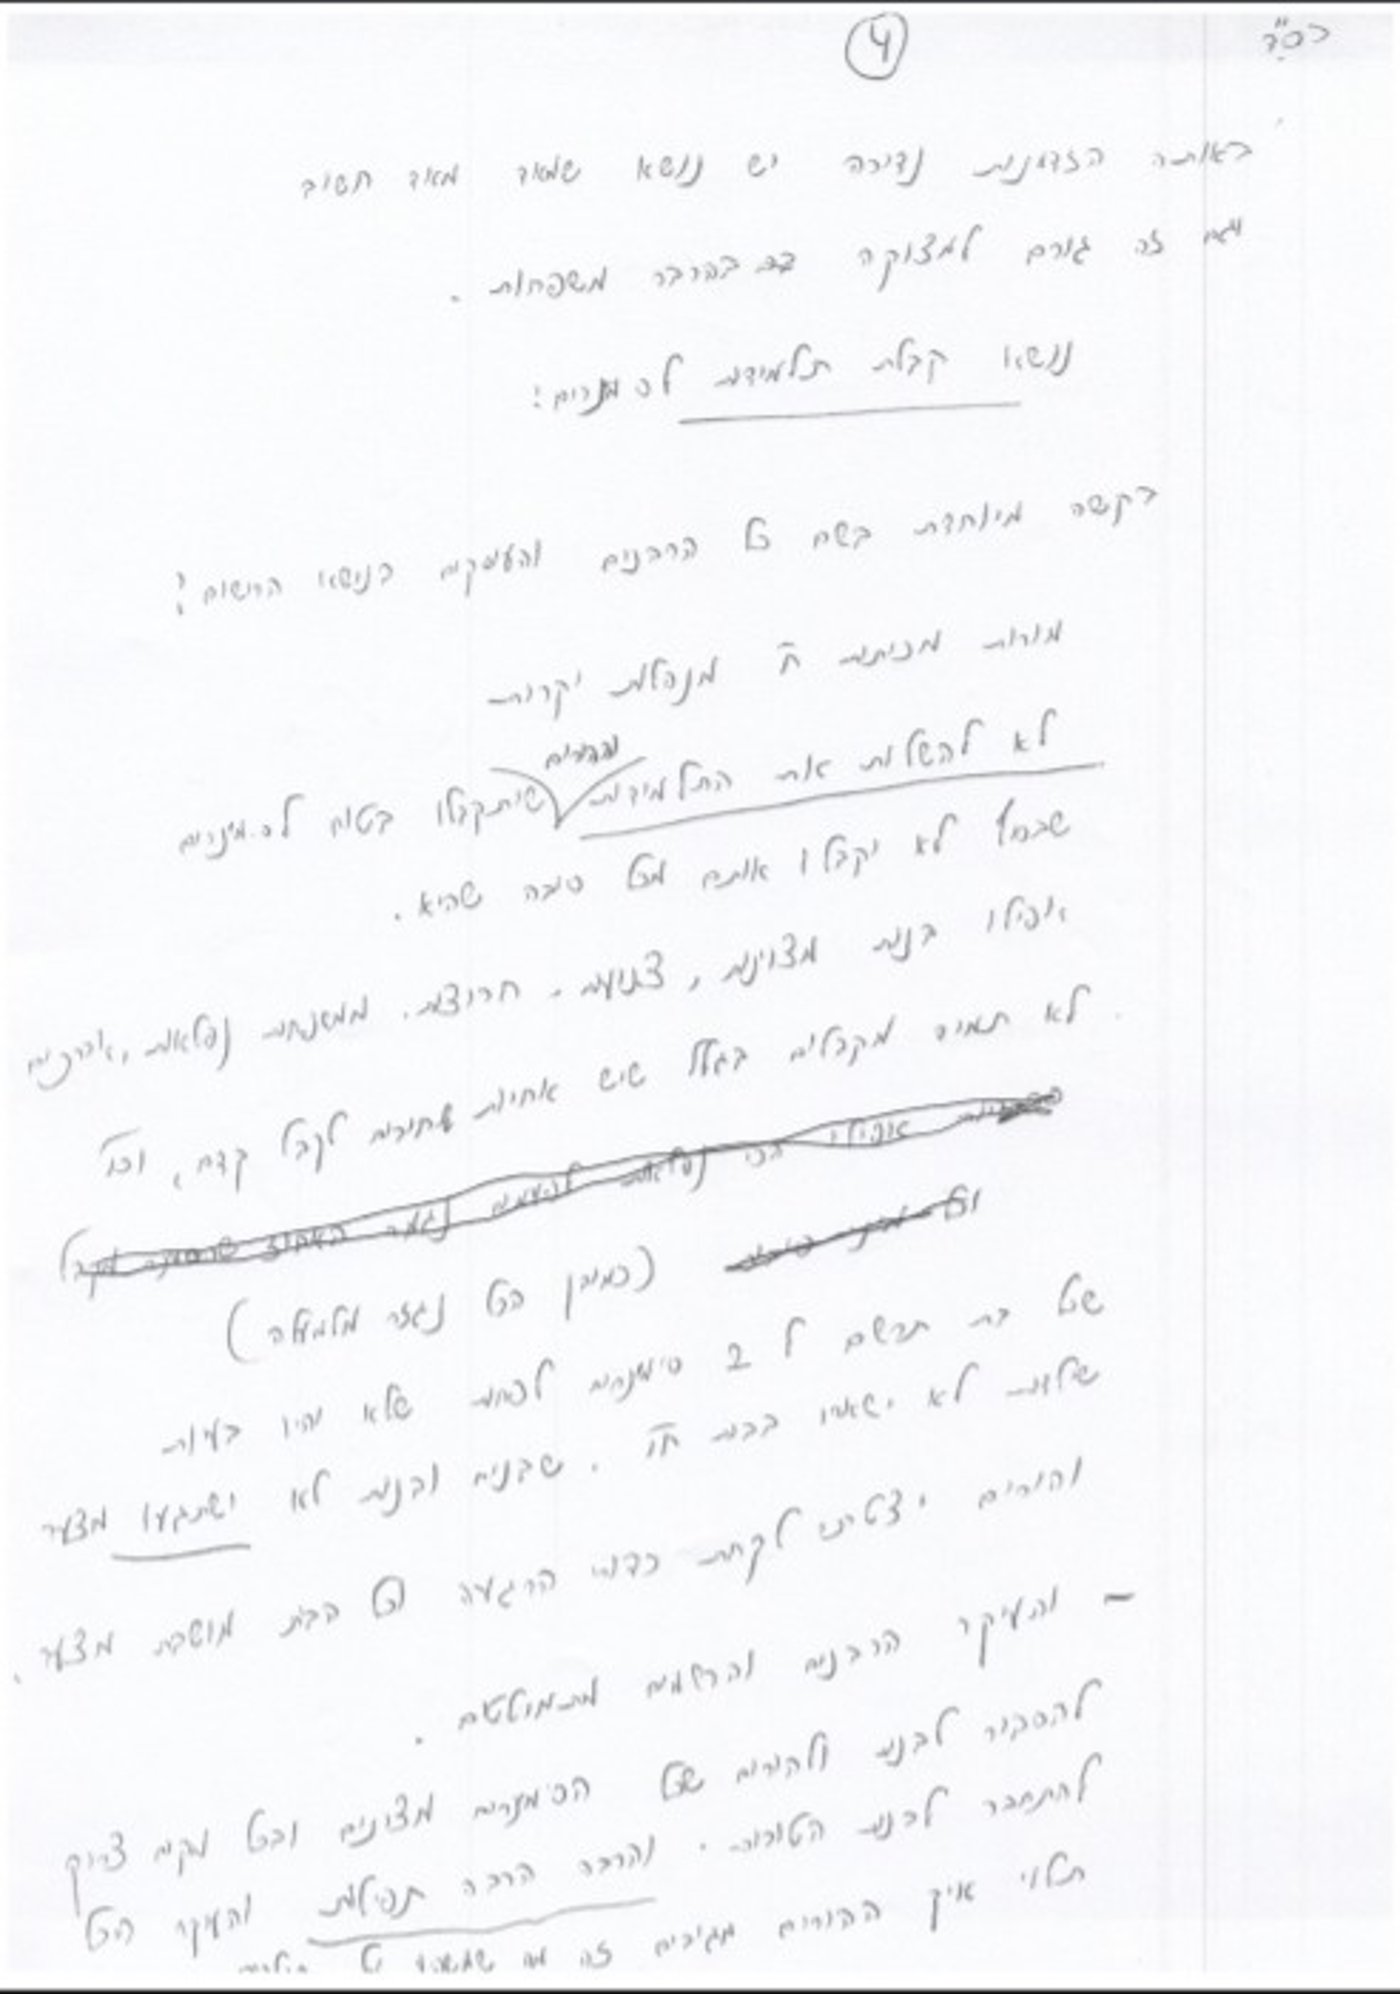 בס"ד
4
באותה הזדמנות נדירה יש נושא שמאד מאד חשוב
וגם זה גורם למצוקה בהרבה משפחות.
נושא קבלת תלמידות לסמנרים:
בקשה מיוחדת בשם כל הרבנים והעוסקים בנושא הרישום:
מורות מכיתות ח' מנהלות יקרות
וההורים
לא להשלות את התלמידות שיתקבלו בטוח לסמינרים
שבסוף לא יקבלו אותם מכל סיבה שהיא.
אפילו בנות מצוינות, צנועות, חרוצות, ממשפחות נפלאות, אברכים
לא תמיד מקבלים בגלל שיש אחיות שחייבים לקבל קודם, וכו'
(כמובן הכל נגזר מלמעלה)
שכל בת תרשם ל 2 סימנרים לפחות שלא יהיו בעיות
שילדות לא ישארו בבית ח"ו. שבנים ובנות לא ישתגעו מצער
והורים יצטרכו לקחת כדורי הרגעה וכל הבית מושבת מצער.
- והעיקר הרבנים והרשמים מתמוטטים.
להסביר לבנות ולהורים שכל הסימנרים מצוינים ובכל מקום צריך
להתחבר לבנות הטובות. והרבה הרבה תפילות והעיקר הכל
תלוי איך ההורים מגיבים זה מה